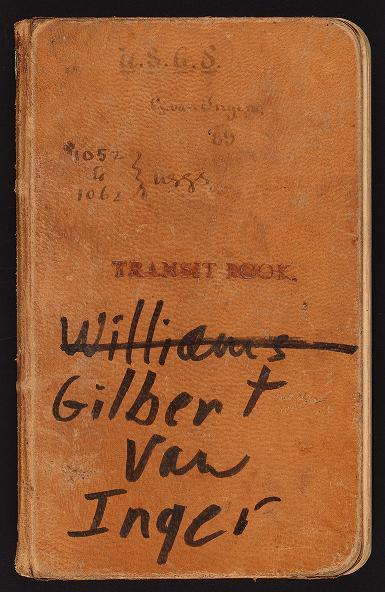 U.S.G.S.
G. van Ingen.
'89
1052
to } USGS
1062
TRANSIT BOOK.
Williams
Gilbert
Van
Inger